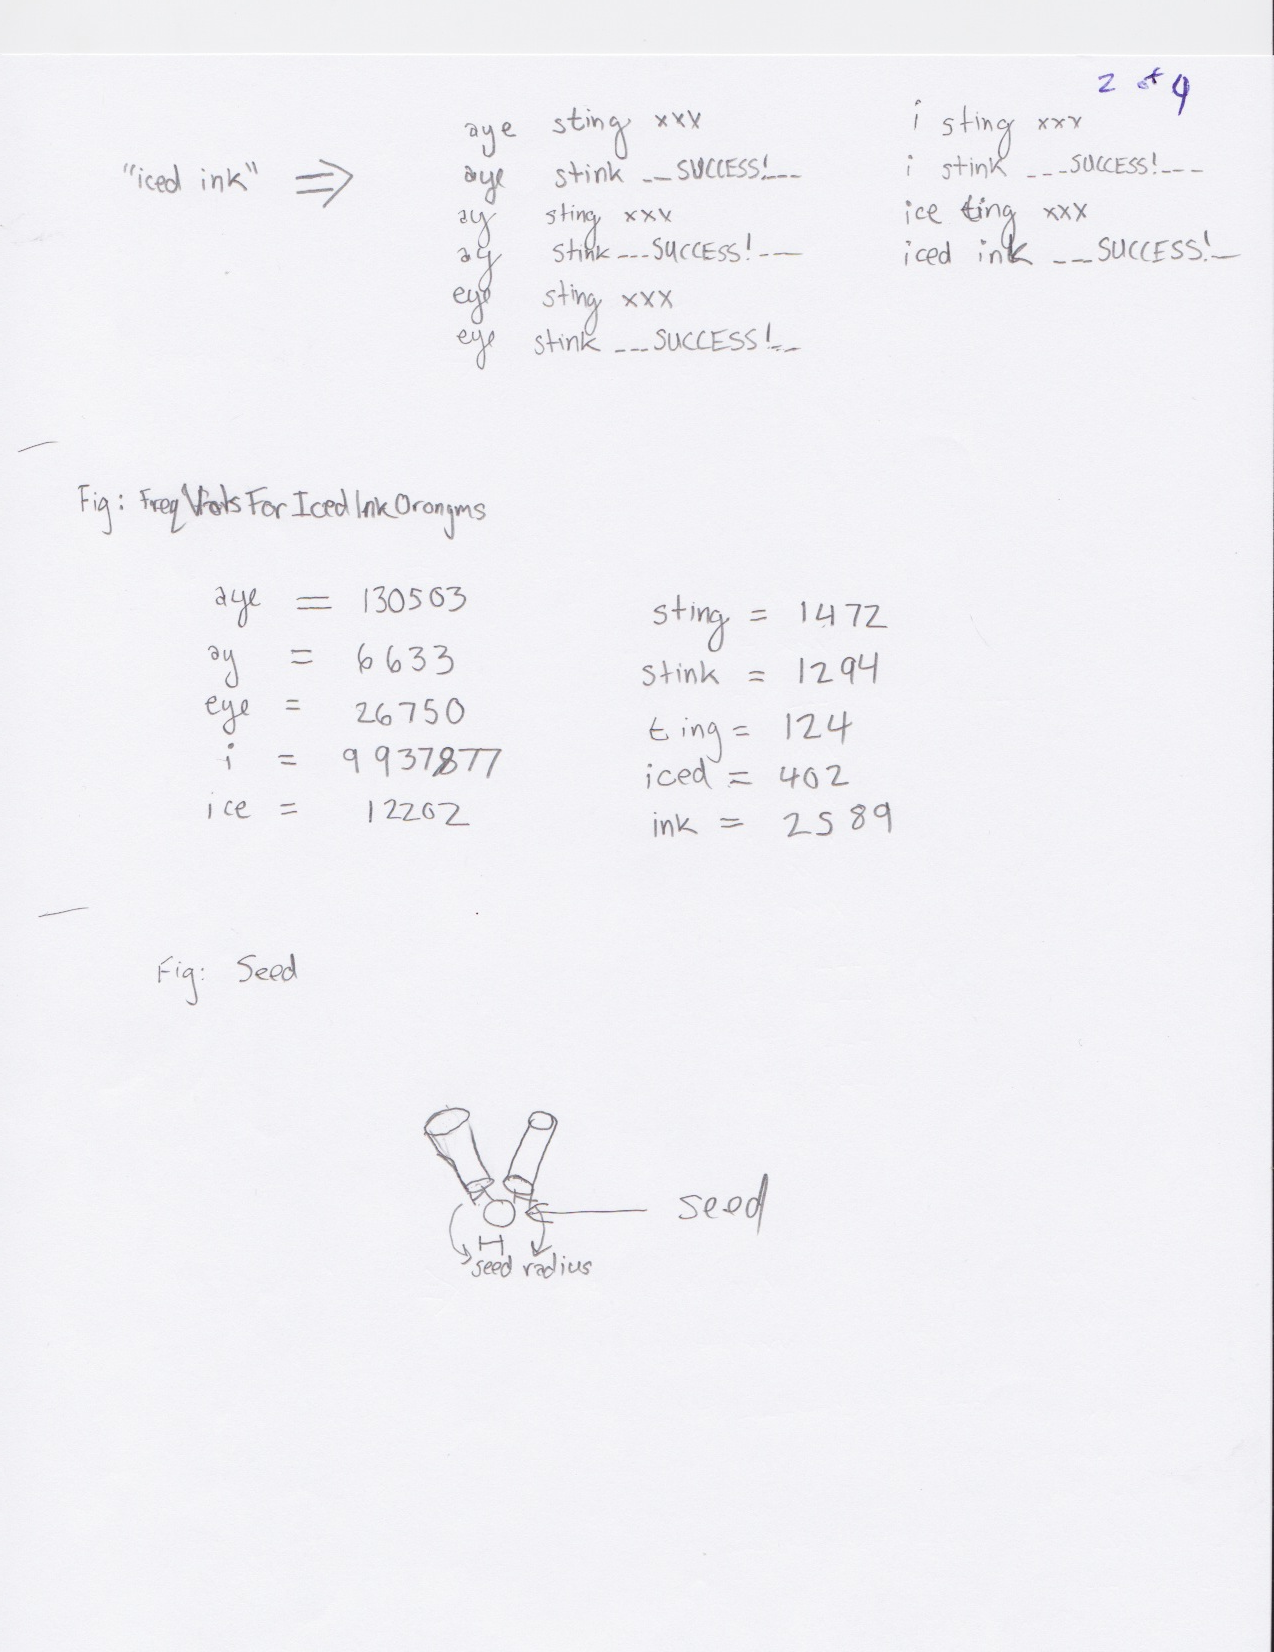 2 of 9
"iced ink" ⇒
aye sting xxx
aye stink __SUCCESS!___
ay sting xxx
ay stink ___SUCCESS!___
eye sting xxx
eye stink ___SUCCESS!__
i sting xxx
i stink ___SUCCESS!___
ice ting xxx
iced ink ___SUCCESS!_
Fig: Freq For Iced Ink Oronyms
aye = 130503
ay = 6633
eye = 26750
i = 9937877
ice = 12202
sting = 1472
stink = 1294
ting = 124
iced = 402
ink = 2589
Fig: Seed
seed
seed radius